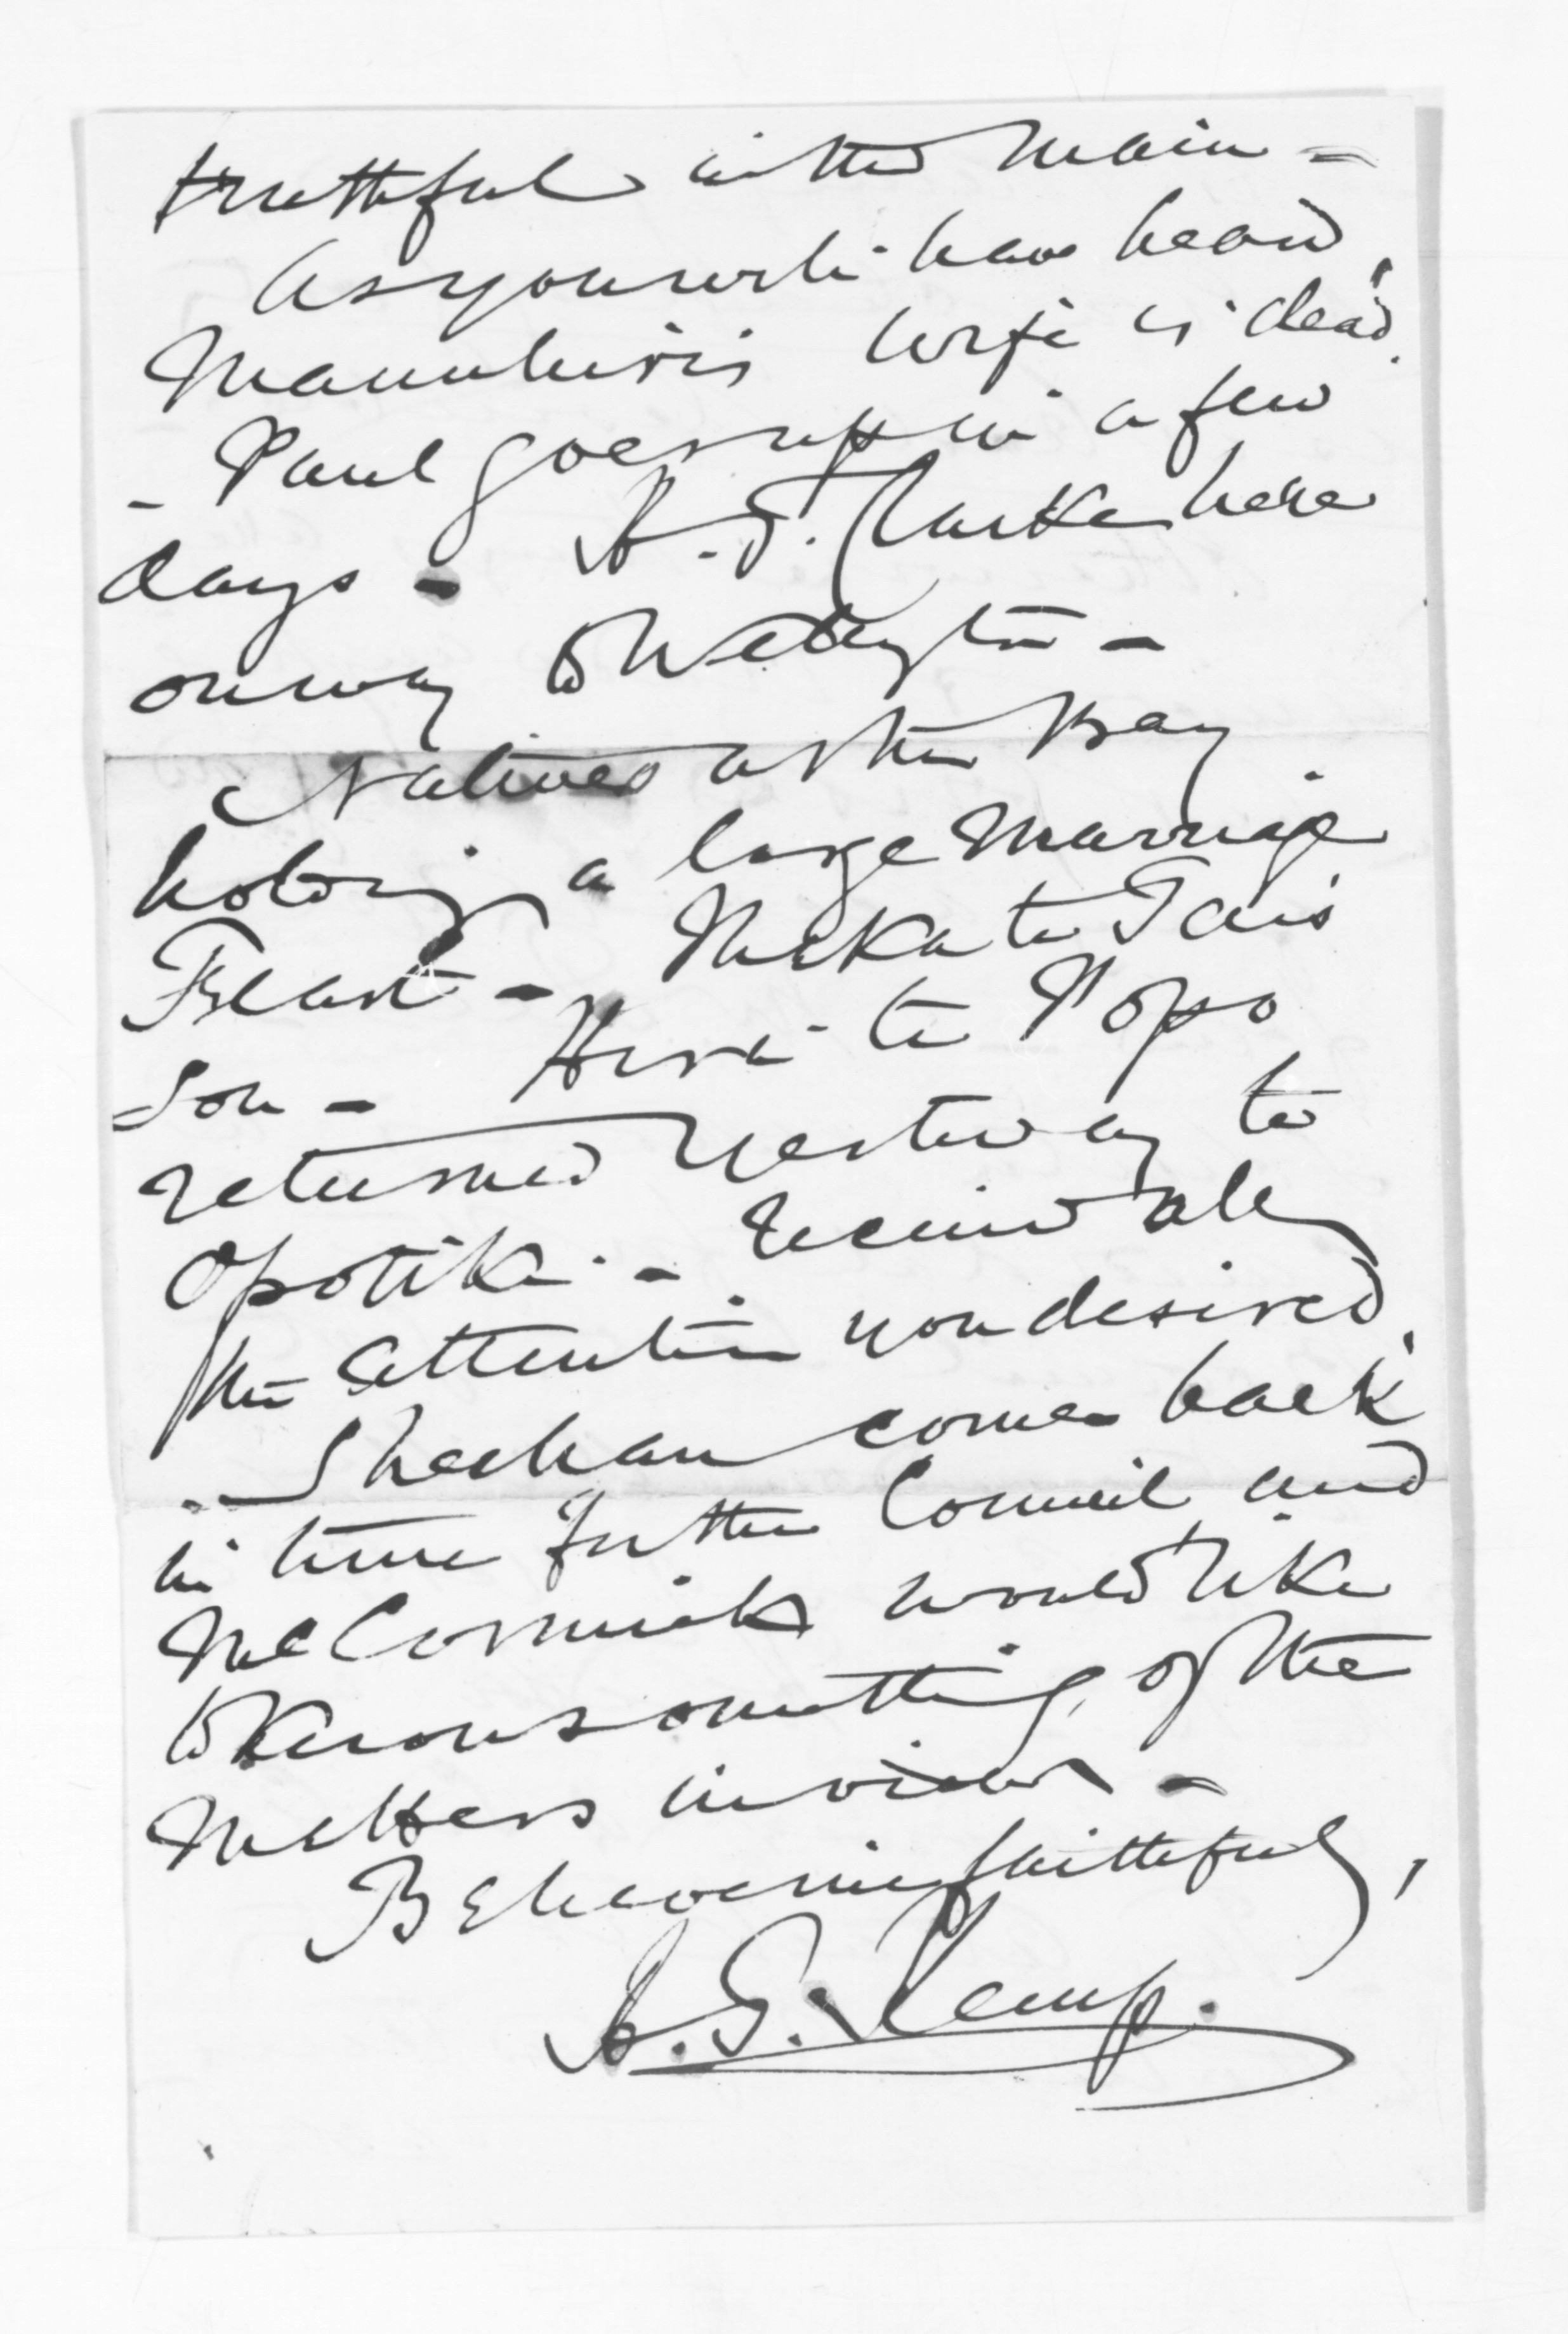 truthful in the main -
As you will have heard,
Manuhiris wife is dead.
- Paul goes up in a few
days - H. T. Clarke here
on way to Wellington -
Natives at the Bay
holding a large Marriage
Feast - Meka te Tais
Son - Hira te Popo
returned yesterday to
Opotiki - received all
the attention you desired.
- Sheehan comes back
in time for the Council and
McCormick would like
to know something of the
matters in view -
Believe me faithfully,
H. T. Kemp.